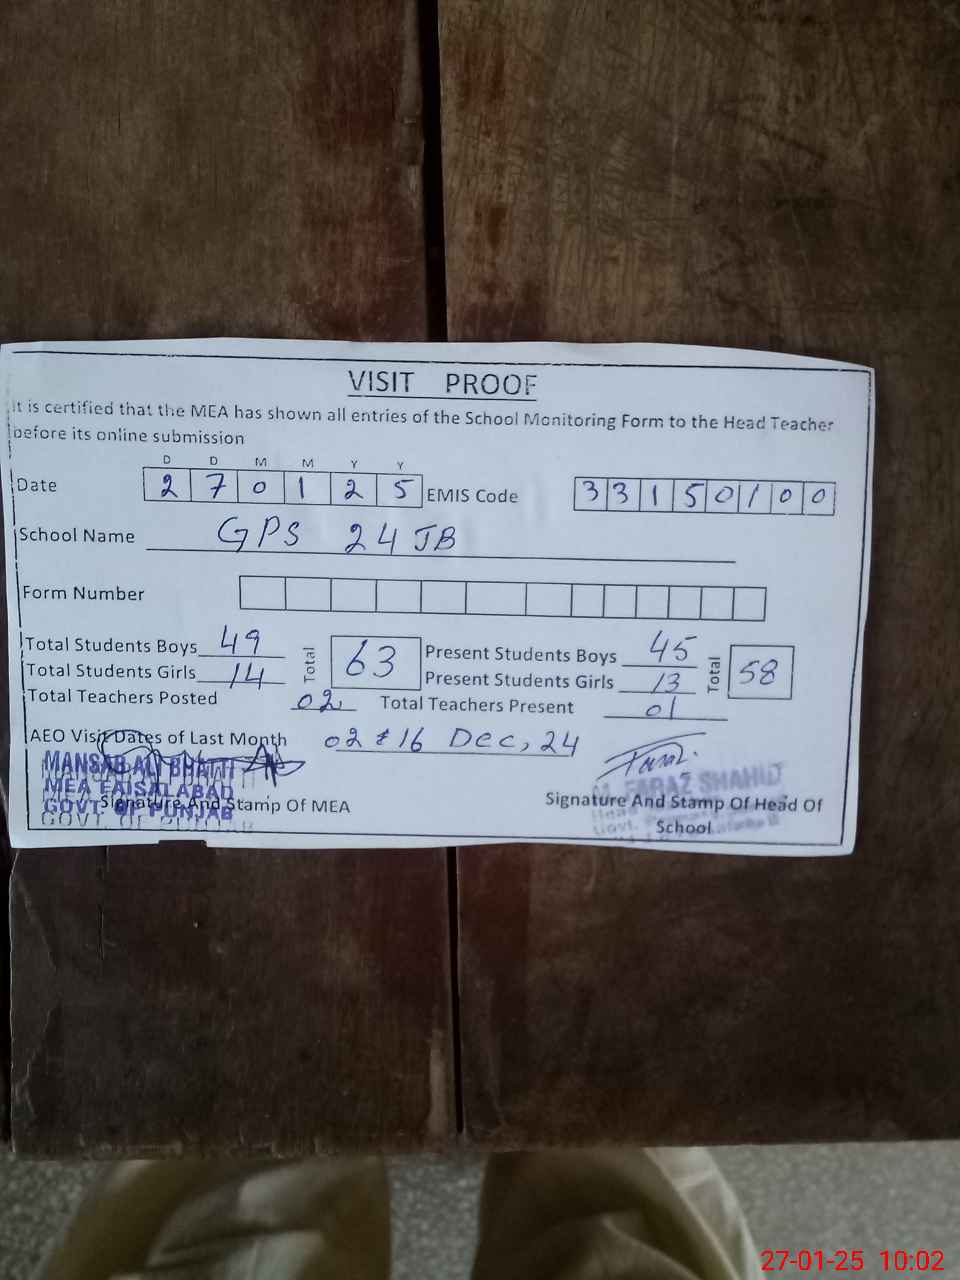 VISIT PROOF
It is certified that the MEA has shown all entries of the School Monitoring Form to the Head Teacher
before its online submission
D D M M Y Y
Date 2 7 0 1 2 5 EMIS Code 3 3 1 5 0 1 0 0
School Name GPS 24 JB
Form Number
Total Students Boys 49 Total 63 Present Students Boys 45 Total 58
Total Students Girls 14 Present Students Girls 13
Total Teachers Posted 02 Total Teachers Present 01
AEO Visit Dates of Last Month 02 & 16 Dec, 24
MANSAB ALI BHATTI
MEA FAISALABAD
GOVT. OF PUNJAB
Signature And Stamp Of MEA
Faraz
M. FARAZ SHAHID
Head
Govt.
Signature And Stamp Of Head Of
School
27-01-25 10:02